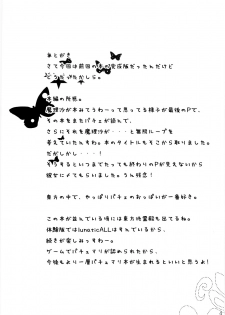 あとがき
さて今回は前回の本が完成版だったんだけど
どうだったかしら。
本編の所感。
魔理沙が本みてうわーって思ってる様子が最後のPで、
その本をまたパチェが読んで、
さらにそれを魔理沙が・・・と無限ループを
考えていたんすわ。本のタイトルもそこから取りました。
だがしかし・・!
そうするといつまでたっても終わりのPが見えないから
彼女に〆てもらいました。うん残念!
東方の中で、やっぱりパチェのおっぱいが一番好き。
この本が並んでいる頃には東方地霊殿も出てるね。
体験版ではlunaticALLはすんでいるから、
続きが楽しみっすわー。
ゲームでパチュマリが認められたから、
今後もより一層パチュマリ本が生まれるといいと思うよ!